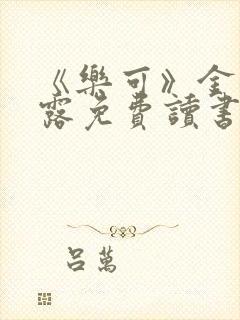 《樂可》全
露免費讀書
呂萬